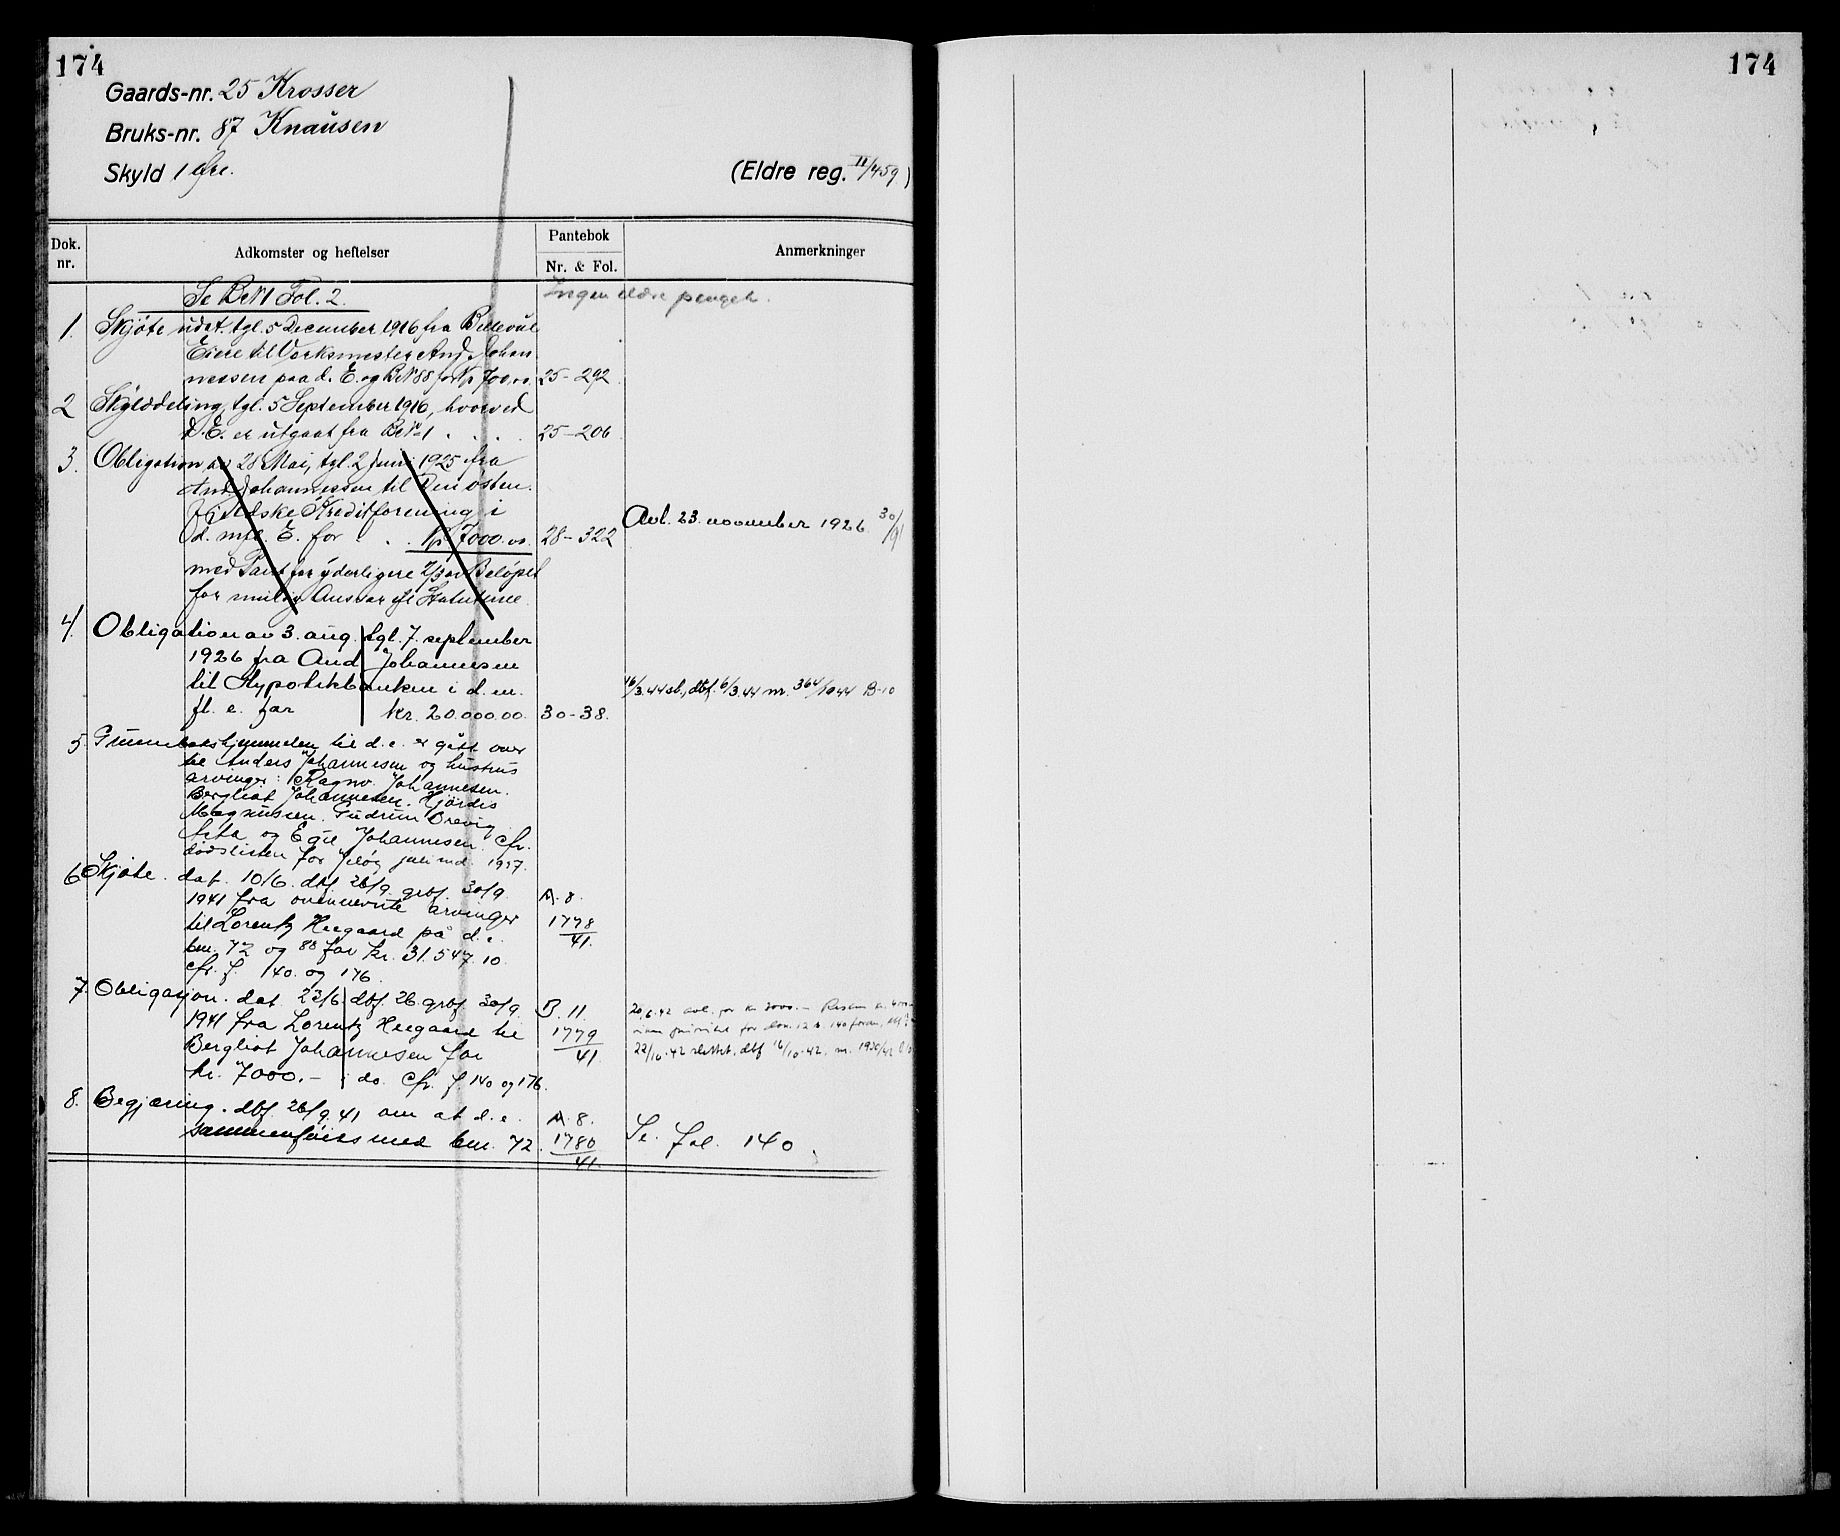 174
174
Gaards-nr. 25 Krosser
Bruks-nr. 87 Knausen
Skyld 1 Øre.
(Eldre reg. II/459)
Dok. nr.
Adkomster og heftelser
Pantebok
Nr. & Fol.
Anmerkninger
Se BrN1 Fol. 2.
Ingen eldre
1. Skjøte udst. tgl. 5 December 1916 fra Bellevue
Eiere til Verksmester And. Johan
nessen paa d. E. og BrN88 for Kr 700.00. 25-292.
2 Skylddeling, tgl. 5 September 1916, hvorved
D. E. er utgaat fra BrN1 . . . . 25-206
3. Obligation av 28 Mai, tgl. 2 Juni 1925 fra
And. Johannessen til Den østen-
fjeldske Kreditforening i
d. mfl. E. for . . Kr 7000.00. 28-322
Avl. 23. november 1926 30/9
med Pant for yderligere 2/3 av Beløpet
for mulig Ansvar efl Statuterne
4. Obligation av 3. aug. tgl. 7. september
1926 fra And. Johannesen
til Hypotekbanken i d. m.
fl. e. for kr. 20.000.00. 30-38.
16/3.44 sl., dbf. 6/3.44 nr. 364/1944 B-10
5. Grunnbokshjemmelen til d. e. er gått over
til Anders Johannesen og hustrus
arvinger: Ragnv. Johannesen.
Bergliot Johannesen. Hjørdis
Magnussen. Gudrun Brevig
Asta og Egil Johannesen. Cfr.
dødslisten for Jeløy juli md. 1937.
6 Skjøte. dat. 10/6. dbf. 26/9. grbf. 30/9.
1941 fra ovennevnte arvinger
til Lorentz Heegaard på d. e.
bnr. 72 og 88 for kr. 31.547.10
cfr. f. 140. og 176.
A. 8.
1778
41.
7. Obligasjon. dat. 22/6 dbf. 26. grbf. 30/9.
1941 fra Lorentz Heegaard til
Bergliot Johannesen for
kr. 7000.- i do. Cfr. f. 140 og 176.
B. 11.
1779
41.
20.6.42 avl. for kr 3000.- Resten kr.
prioritet for dok. 12 b. 140
22/10.42 slettet, dbf 16/10.42. nr. 1930/42
8. Begjæring. dbf. 26/9.41 om at d. e.
sammenføies med bnr. 72.
A. 8.
1780
41.
Se. fol. 140.